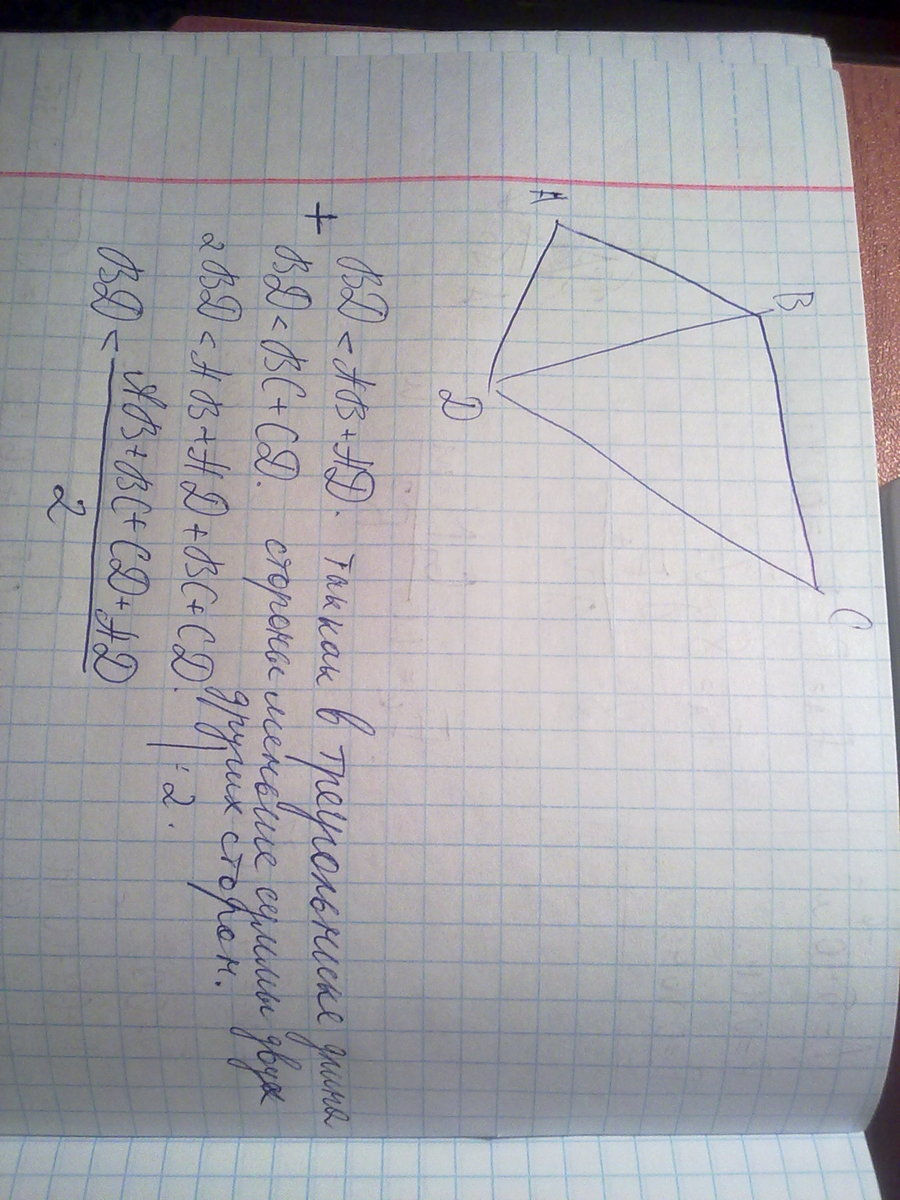 B
C
A
D
BD < AB + AD. так как в треугольнике длина
+
BD < BC + CD. стороны меньше суммы двух
других сторон.
2BD < AB + AD + BC + CD. | : 2.
BD < AB + BC + CD + AD
2